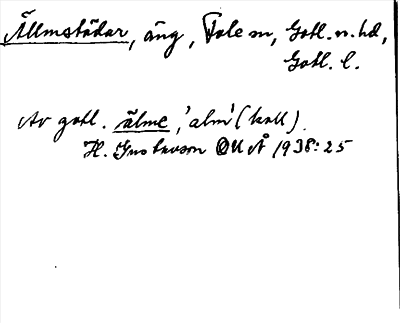 Ällmstädar, äng, Fole sn, Gotl. n. hd,
Gotl. l.
Av gotl. älme, 'alm' (koll).
H. Gustavson OUÅ 1938: 25